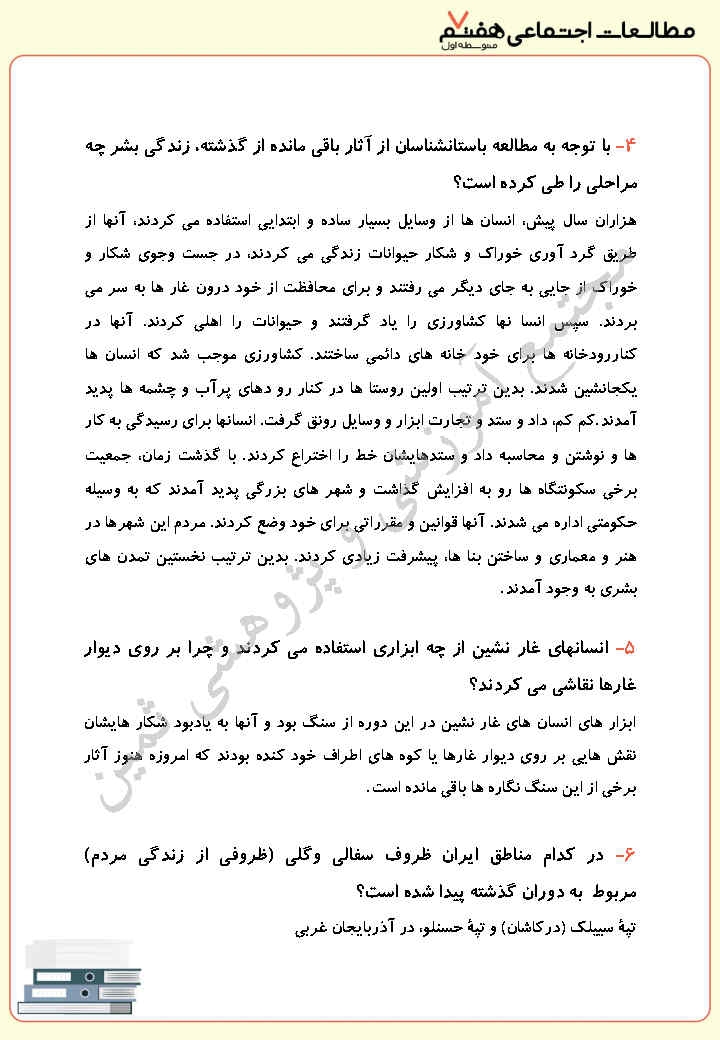 مطالعات اجتماعی هفتم ۷
متوسطه اول
۴- با توجه به مطالعه باستانشناسان از آثار باقی مانده از گذشته، زندگی بشر چه
مراحلی را طی کرده است؟
هزاران سال پیش، انسان ها از وسایل بسیار ساده و ابتدایی استفاده می کردند، آنها از
طریق گرد آوری خوراک و شکار حیوانات زندگی می کردند، در جست وجوی شکار و
خوراک از جایی به جای دیگر می رفتند و برای محافظت از خود درون غار ها به سر می
بردند. سپس انسا نها کشاورزی را یاد گرفتند و حیوانات را اهلی کردند. آنها در
کناررودخانه ها برای خود خانه های دائمی ساختند. کشاورزی موجب شد که انسان ها
یکجانشین شدند. بدین ترتیب اولین روستا ها در کنار رو دهای پرآب و چشمه ها پدید
آمدند.کم کم، داد و ستد و تجارت ابزار و وسایل رونق گرفت. انسانها برای رسیدگی به کار
ها و نوشتن و محاسبه داد و ستدهایشان خط را اختراع کردند. با گذشت زمان، جمعیت
برخی سکونتگاه ها رو به افزایش گذاشت و شهر های بزرگی پدید آمدند که به وسیله
حکومتی اداره می شدند. آنها قوانین و مقرراتی برای خود وضع کردند. مردم این شهرها در
هنر و معماری و ساختن بنا ها، پیشرفت زیادی کردند. بدین ترتیب نخستین تمدن های
بشری به وجود آمدند.
۵- انسانهای غار نشین از چه ابزاری استفاده می کردند و چرا بر روی دیوار
غارها نقاشی می کردند؟
ابزار های انسان های غار نشین در این دوره از سنگ بود و آنها به یادبود شکار هایشان
نقش هایی بر روی دیوار غارها یا کوه های اطراف خود کنده بودند که امروزه هنوز آثار
برخی از این سنگ نگاره ها باقی مانده است.
۶- در کدام مناطق ایران ظروف سفالی وگلی (ظروفی از زندگی مردم)
مربوط به دوران گذشته پیدا شده است؟
تپهٔ سیپلک (درکاشان) و تپهٔ حسنلو، در آذربایجان غربی
مجتمع آموزشی و پژوهشی ثمین